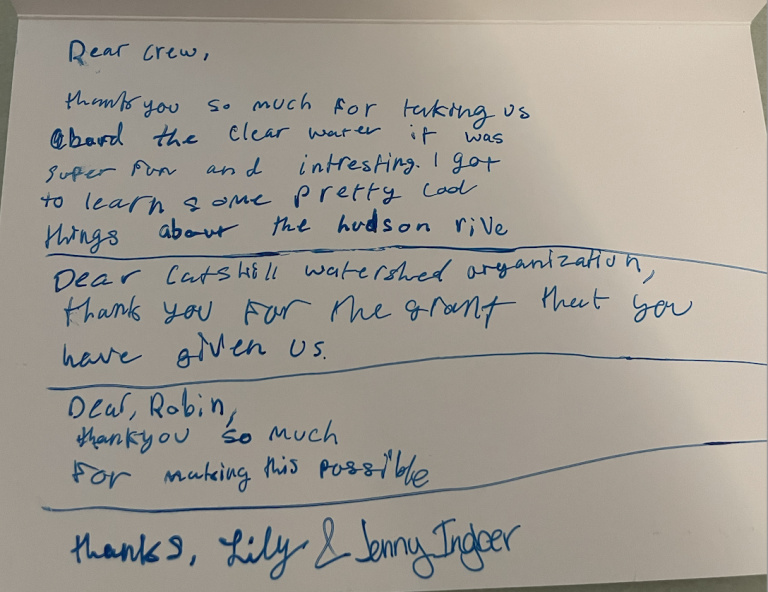 Dear crew,
thankyou so much for taking us
abord the clear water it was
super fun and intresting. I got
to learn some pretty cool
things about the hudson rive
Dear Catskill watershed organization,
thank you for the grant that you
have given us.
Dear, Robin,
thankyou so much
for making this possible
thanks, Lily & Jenny Ingber